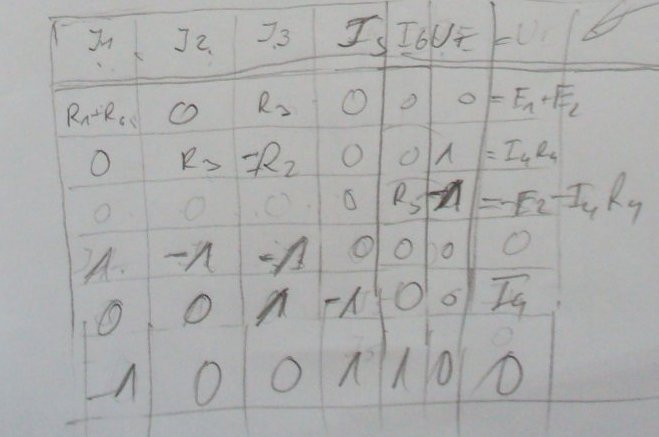 I1 I2 I3 I5 I6 U7
0 R3 0 0 0 = E1+E2
0 R3 -R2 0 0 1 = I4R4
0 0 0 0 R5 -1 = -E2-I4R4
1 -1 -1 0 0 0 0
0 0 1 -1 0 0 I4
-1 0 0 1 1 0 0